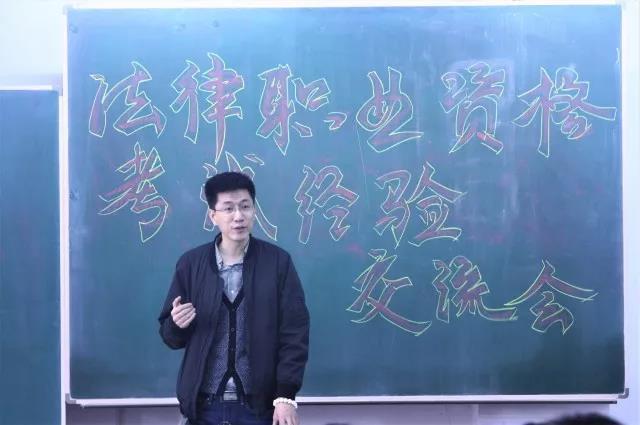 法律职业资格
考试经验
交流会